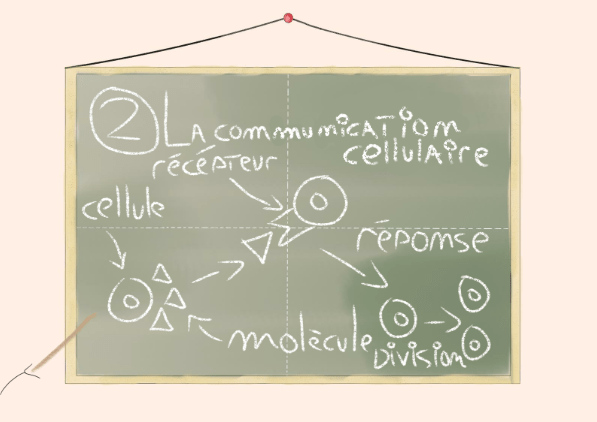 2 La communication
cellulaire
récépteur
cellule
réponse
molècule
Division